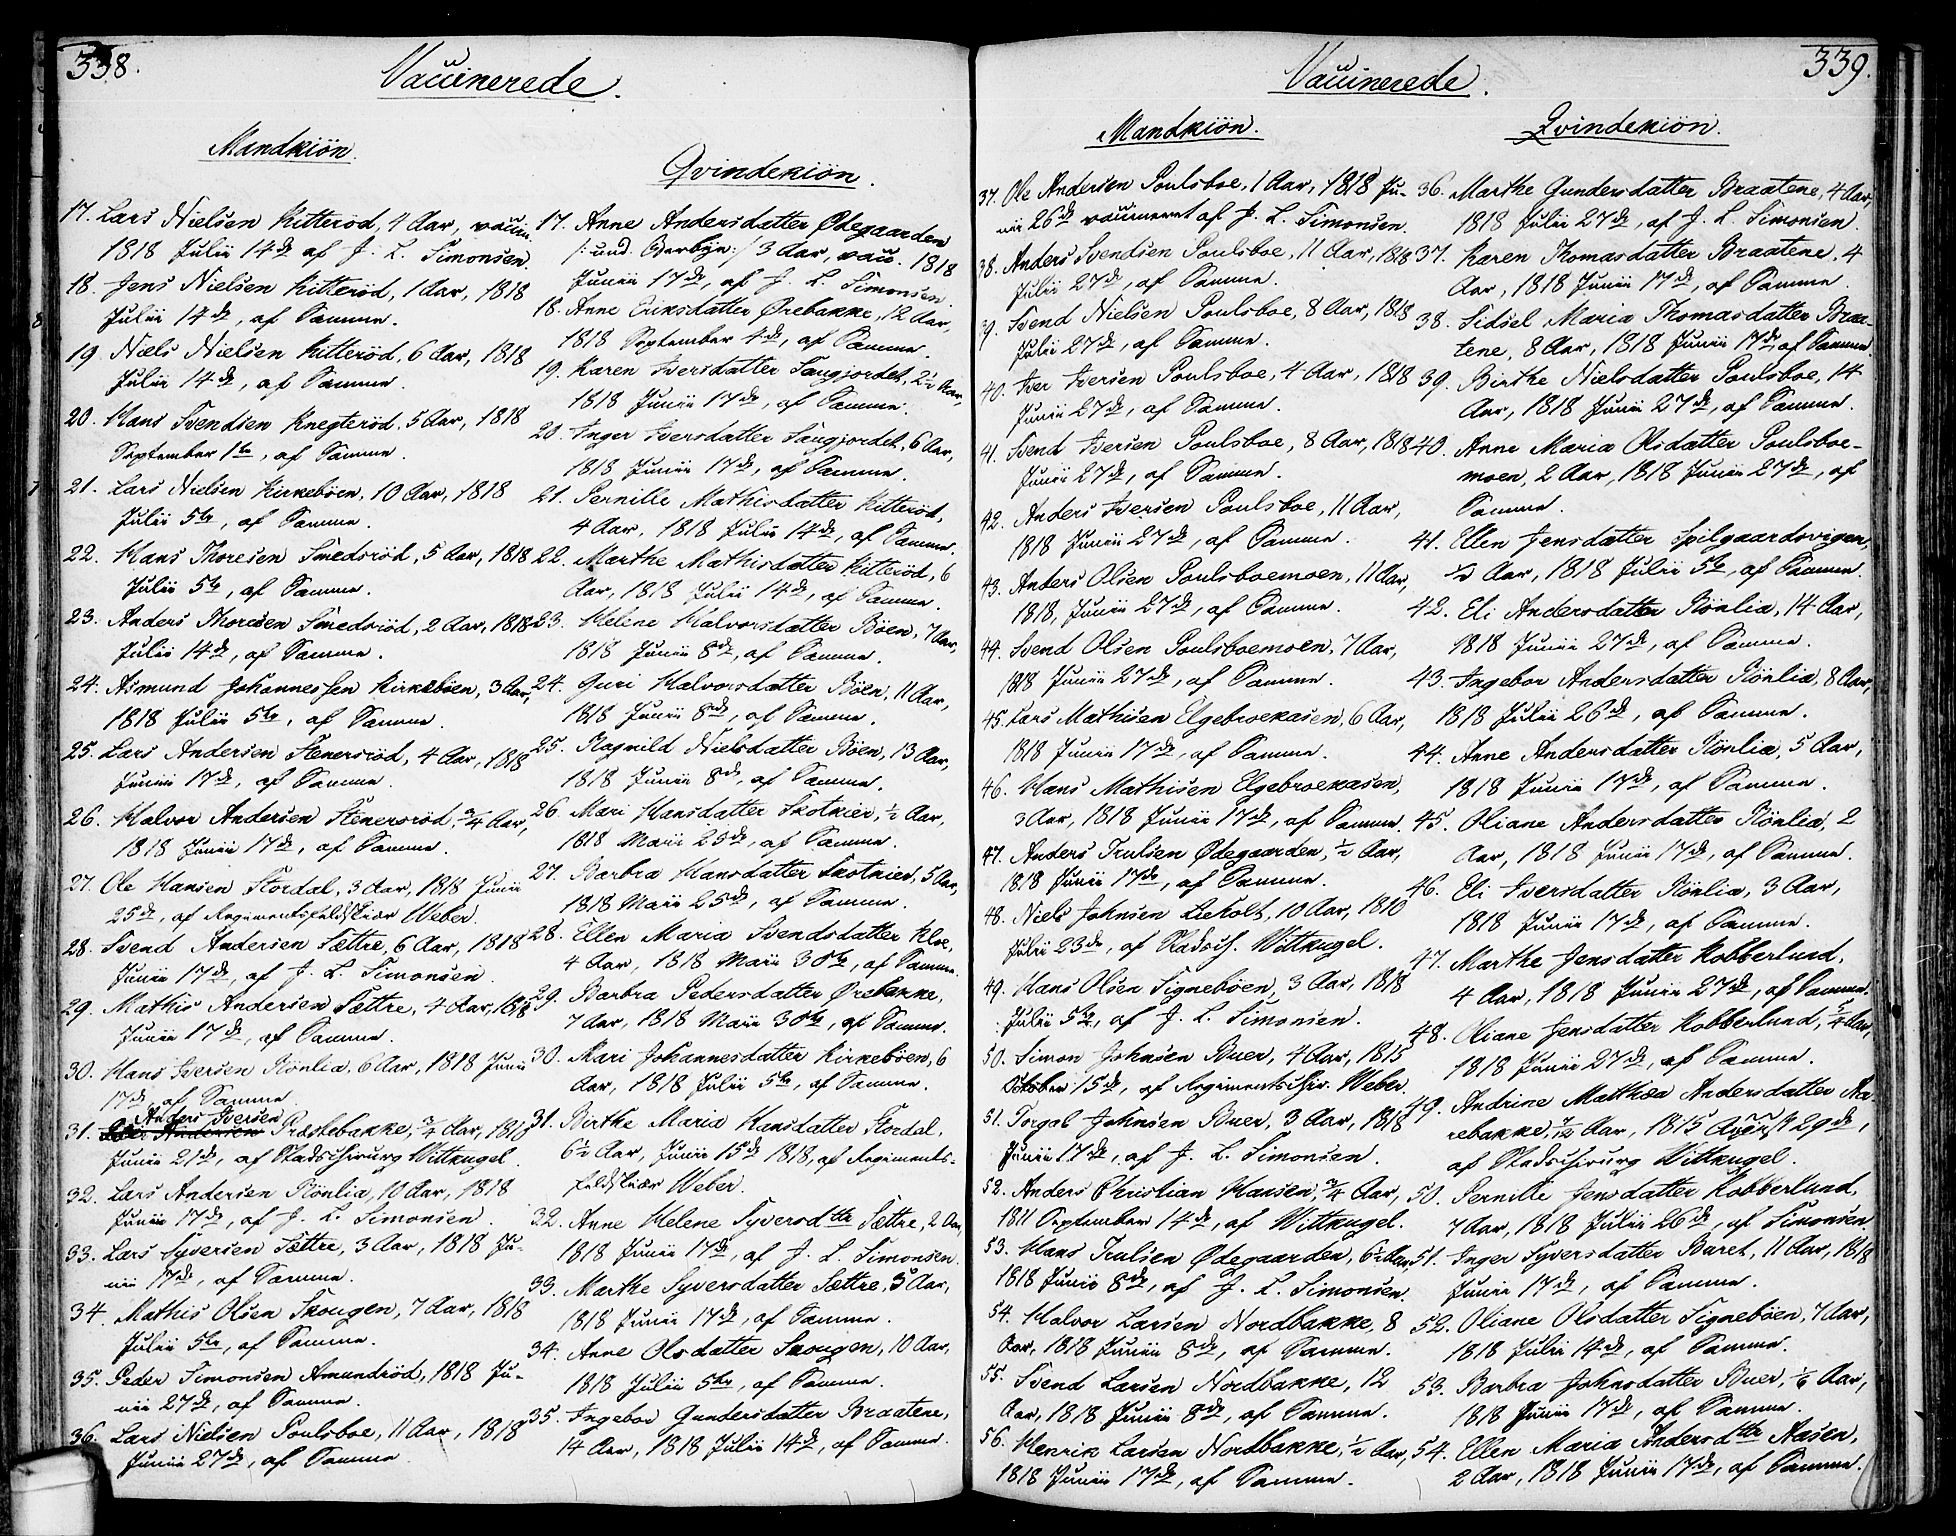 338.
Vaccinerede.
Mandkiön.
17. Lars Nielsen Kitteröd, 4 Aar, vaccin.
1818 Julii 14de af J. L. Simonsen.
18. Jens Nielsen Kitteröd, 1 Aar, 1818
Julii 14de, af Samme.
19. Niels Nielsen Kitteröd, 6 Aar, 1818
Julii 14de, af Samme.
20. Hans Svendsen Knegteröd, 5 Aar, 1818
September 1ste, af Samme.
21. Lars Nielsen Kirkebøen, 10 Aar, 1818
Julii 5te, af Samme.
22. Hans Thoresen Smedsröd, 5 Aar, 1818
Julii 5te, af Samme.
23. Anders Thoresen Smedsröd, 2 Aar, 1818
Julii 14de, af Samme.
24. Asmund Johannessen Kirkebøen, 3 Aar,
1818 Julii 5te, af Samme.
25. Lars Andersen Stenersröd, 4 Aar, 1818
Junii 17de, af Samme.
26. Halvor Andersen Stenersröd, 3/4 Aar,
1818 Junii 17de, af Samme.
27. Ole Hansen Stordal, 3 Aar, 1818 Junii
25de, af Regimentsfeldskiær Weber.
28. Svend Andersen Sættre, 6 Aar, 1818
Junii 17de, af J. L. Simonsen.
29. Mathis Andersen Sættre, 4 Aar, 1818
Junii 17de, af Samme.
30. Hans Iversen Rönlia, 6 Aar, 1818 Junii
17de, af Samme.
Anders Iversen
31. Iver Andersen Præstebakke, 3/4 Aar, 1818
Junii 21de, af Stadschirurg Wittkugel.
32. Lars Andersen Rönlia, 10 Aar, 1818
Junii 17de, af J. L. Simonsen.
33. Lars Syversen Sættre, 3 Aar, 1818 Ju-
nii 17de, af Samme.
34. Mathis Olsen Skougen, 7 Aar, 1818
Julii 5te, af Samme.
35. Peder Simonsen Amundröd, 1818 Ju-
nii 27de, af Samme.
36. Lars Nielsen Poulsboe, 11 Aar, 1818
Junii 27de, af Samme.
Qvindekiön.
17. Anne Andersdatter Ødegaarden
/: und. Berbye:/ 3 Aar, vacc. 1818
Junii 17de, af J. L. Simonsen.
18. Anne Eriksdatter Ørebakke, 12 Aar,
1818 September 4de, af Samme.
19. Karen Iversdatter Saugjordet, 2 1/2 Aar,
1818 Junii 17de, af Samme.
20. Inger Iversdatter Saugjordet, 6 Aar,
1818 Junii 17de, af Samme.
21. Pernille Mathisdatter Kitteröd,
4 Aar, 1818 Julii 14de, af Samme.
22. Marthe Mathisdatter Kitteröd, 6
Aar, 1818 Julii 14de, af Samme.
23. Helene Halvorsdatter Bøen, 7 Aar,
1818 Junii 8de, af Samme.
24. Guri Halvorsdatter Bøen, 11 Aar,
1818 Junii 8de, af Samme.
25. Ragnild Nielsdatter Bøen, 13 Aar,
1818 Junii 8de, af Samme.
26. Mari Hansdatter Skotkier, 1/2 Aar,
1818 Maii 25de, af Samme.
27. Barbra Hansdatter Skotkier, 5 Aar,
1818 Maii 25de, af Samme.
28. Ellen Maria Svendsdatter Kloe,
4 Aar, 1818 Maii 30te, af Samme.
29. Barbra Pedersdatter Ørebakke,
7 Aar, 1818 Maii 30te, af Samme.
30. Mari Johannesdatter Kirkebøen, 6
Aar, 1818 Julii 5te, af Samme.
31. Birthe Maria Hansdatter Stordal,
6 1/2 Aar, Junii 15de 1818, af Regiments-
feldskiær Weber.
32. Anne Helene Syversdttr Sættre, 2 Aar,
1818 Junii 17de, af J. L. Simonsen.
33. Marthe Syversdatter Sættre, 5 Aar,
1818 Junii 17de, af Samme.
34. Anne Olsdatter Skougen, 10 Aar,
1818 Julii 5te, af Samme.
35. Ingebor Gundersdatter Braatene,
14 Aar, 1818 Julii 14de, af Samme.
339.
Vaccinerede.
Mandkiön.
37. Ole Andersen Poulsboe, 1 Aar, 1818 Ju-
nii 26de vaccineret af J. L. Simonsen.
38. Anders Svendsen Poulsboe, 11 Aar, 1818
Julii 27de, af Samme.
39. Svend Nielsen Poulsboe, 8 Aar, 1818
Julii 27de, af Samme.
40. Iver Iversen Poulsboe, 4 Aar, 1818
Junii 27de, af Samme.
41. Svend Iversen Poulsboe, 8 Aar, 1818
Junii 27de, af Samme.
42. Anders Iversen Poulsboe, 11 Aar,
1818 Junii 27de, af Samme.
43. Anders Olsen Poulsboemoen, 11 Aar,
1818, Junii 27de, af Samme.
44. Svend Olsen Poulsboemoen, 7 Aar,
1818 Junii 27de, af Samme.
45. Lars Mathisen Elgebroekasen, 6 Aar,
1818 Junii 17de, af Samme.
46. Hans Mathisen Elgebroekasen,
3 Aar, 1818 Junii 17de, af Samme.
47. Anders Trulsen Ødegaarden, 1/2 Aar,
1818 Junii 17de, af Samme.
48. Niels Johnsen Lieholt, 10 Aar, 1810
Julii 23de, af Stadsch. Wittkugel.
49. Hans Olsen Signebøen, 3 Aar, 1818
Julii 5te, af J. L. Simonsen.
50. Simon Johnsen Buer, 4 Aar, 1815
October 15de, af Regimentschir. Weber.
51. Torgal Johnsen Buer, 3 Aar, 1818
Junii 17de, af J. L. Simonsen.
52. Anders Christian Hansen, 3/4 Aar,
1811 September 14de, af Wittkugel.
53. Hans Trulsen Ødegaarden, 6 1/2 Aar,
1818 Junii 8de, af J. L. Simonsen.
54. Halvor Larsen Nordbakke, 8
Aar, 1818 Junii 8de, af Samme.
55. Svend Larsen Nordbakke, 12
Aar, 1818 Junii 8de, af Samme.
56. Henrik Larsen Nordbakke, 1/2 Aar,
1818 Junii 17de, af Samme.
Qvindekiön.
36. Marthe Gundersdatter Braatene, 4 Aar,
1818 Julii 27de, af J. L. Simonsen.
37. Karen Thomasdatter Braatene, 4
Aar, 1818 Junii 17de, af Samme.
38. Sidsel Maria Thomasdatter Braa-
tene, 8 Aar, 1818 Junii 17de, af Samme.
39. Birthe Nielsdatter Poulsboe, 14
Aar, 1818 Junii 27de, af Samme.
40. Anne Maria Olsdatter Poulsboe-
moen, 2 Aar, 1818 Junii 27de, af
Samme.
41. Ellen Jensdatter Spilgaardsvigen,
1/2 Aar, 1818 Julii 5te, af Samme.
42. Eli Andersdatter Rönlia, 14 Aar,
1818 Junii 27de, af Samme.
43. Ingebor Andersdatter Rönlia, 8 Aar,
1818 Julii 26de, af Samme.
44. Anne Andersdatter Rönlia, 5 Aar,
1818 Junii 17de, af Samme.
45. Oliane Andersdatter Rönlia, 2
Aar, 1818 Junii 17de, af Samme.
46. Eli Iversdatter Rönlia, 3 Aar,
1818 Junii 17de, af Samme.
47. Marthe Jensdatter Kobberlund,
4 Aar, 1818 Junii 27de, af Samme.
48. Oliane Jensdatter Kobberlund, 5/4 Aar,
1818 Junii 27de, af Samme.
49. Andrine Matthea Andersdatter Aa-
rebakke, 7/12 Aar, 1815 August 29de,
af Stadschirurg Wittkugel.
50. Pernille Jensdatter Kobberlund,
7 Aar, 1818 Julii 26de, af Simonsen.
51. Inger Syversdatter Buret, 11 Aar, 1818
Junii 17de, af Samme.
52. Oliane Olsdatter Signebøen, 7 Aar,
1818 Julii 14de, af Samme.
53. Barbra Johnsdatter Buer, 1/6 Aar,
1818 Junii 17de, af Samme.
54. Ellen Maria Andersdttr Aasen,
2 Aar, 1818 Junii 17de, af Samme.